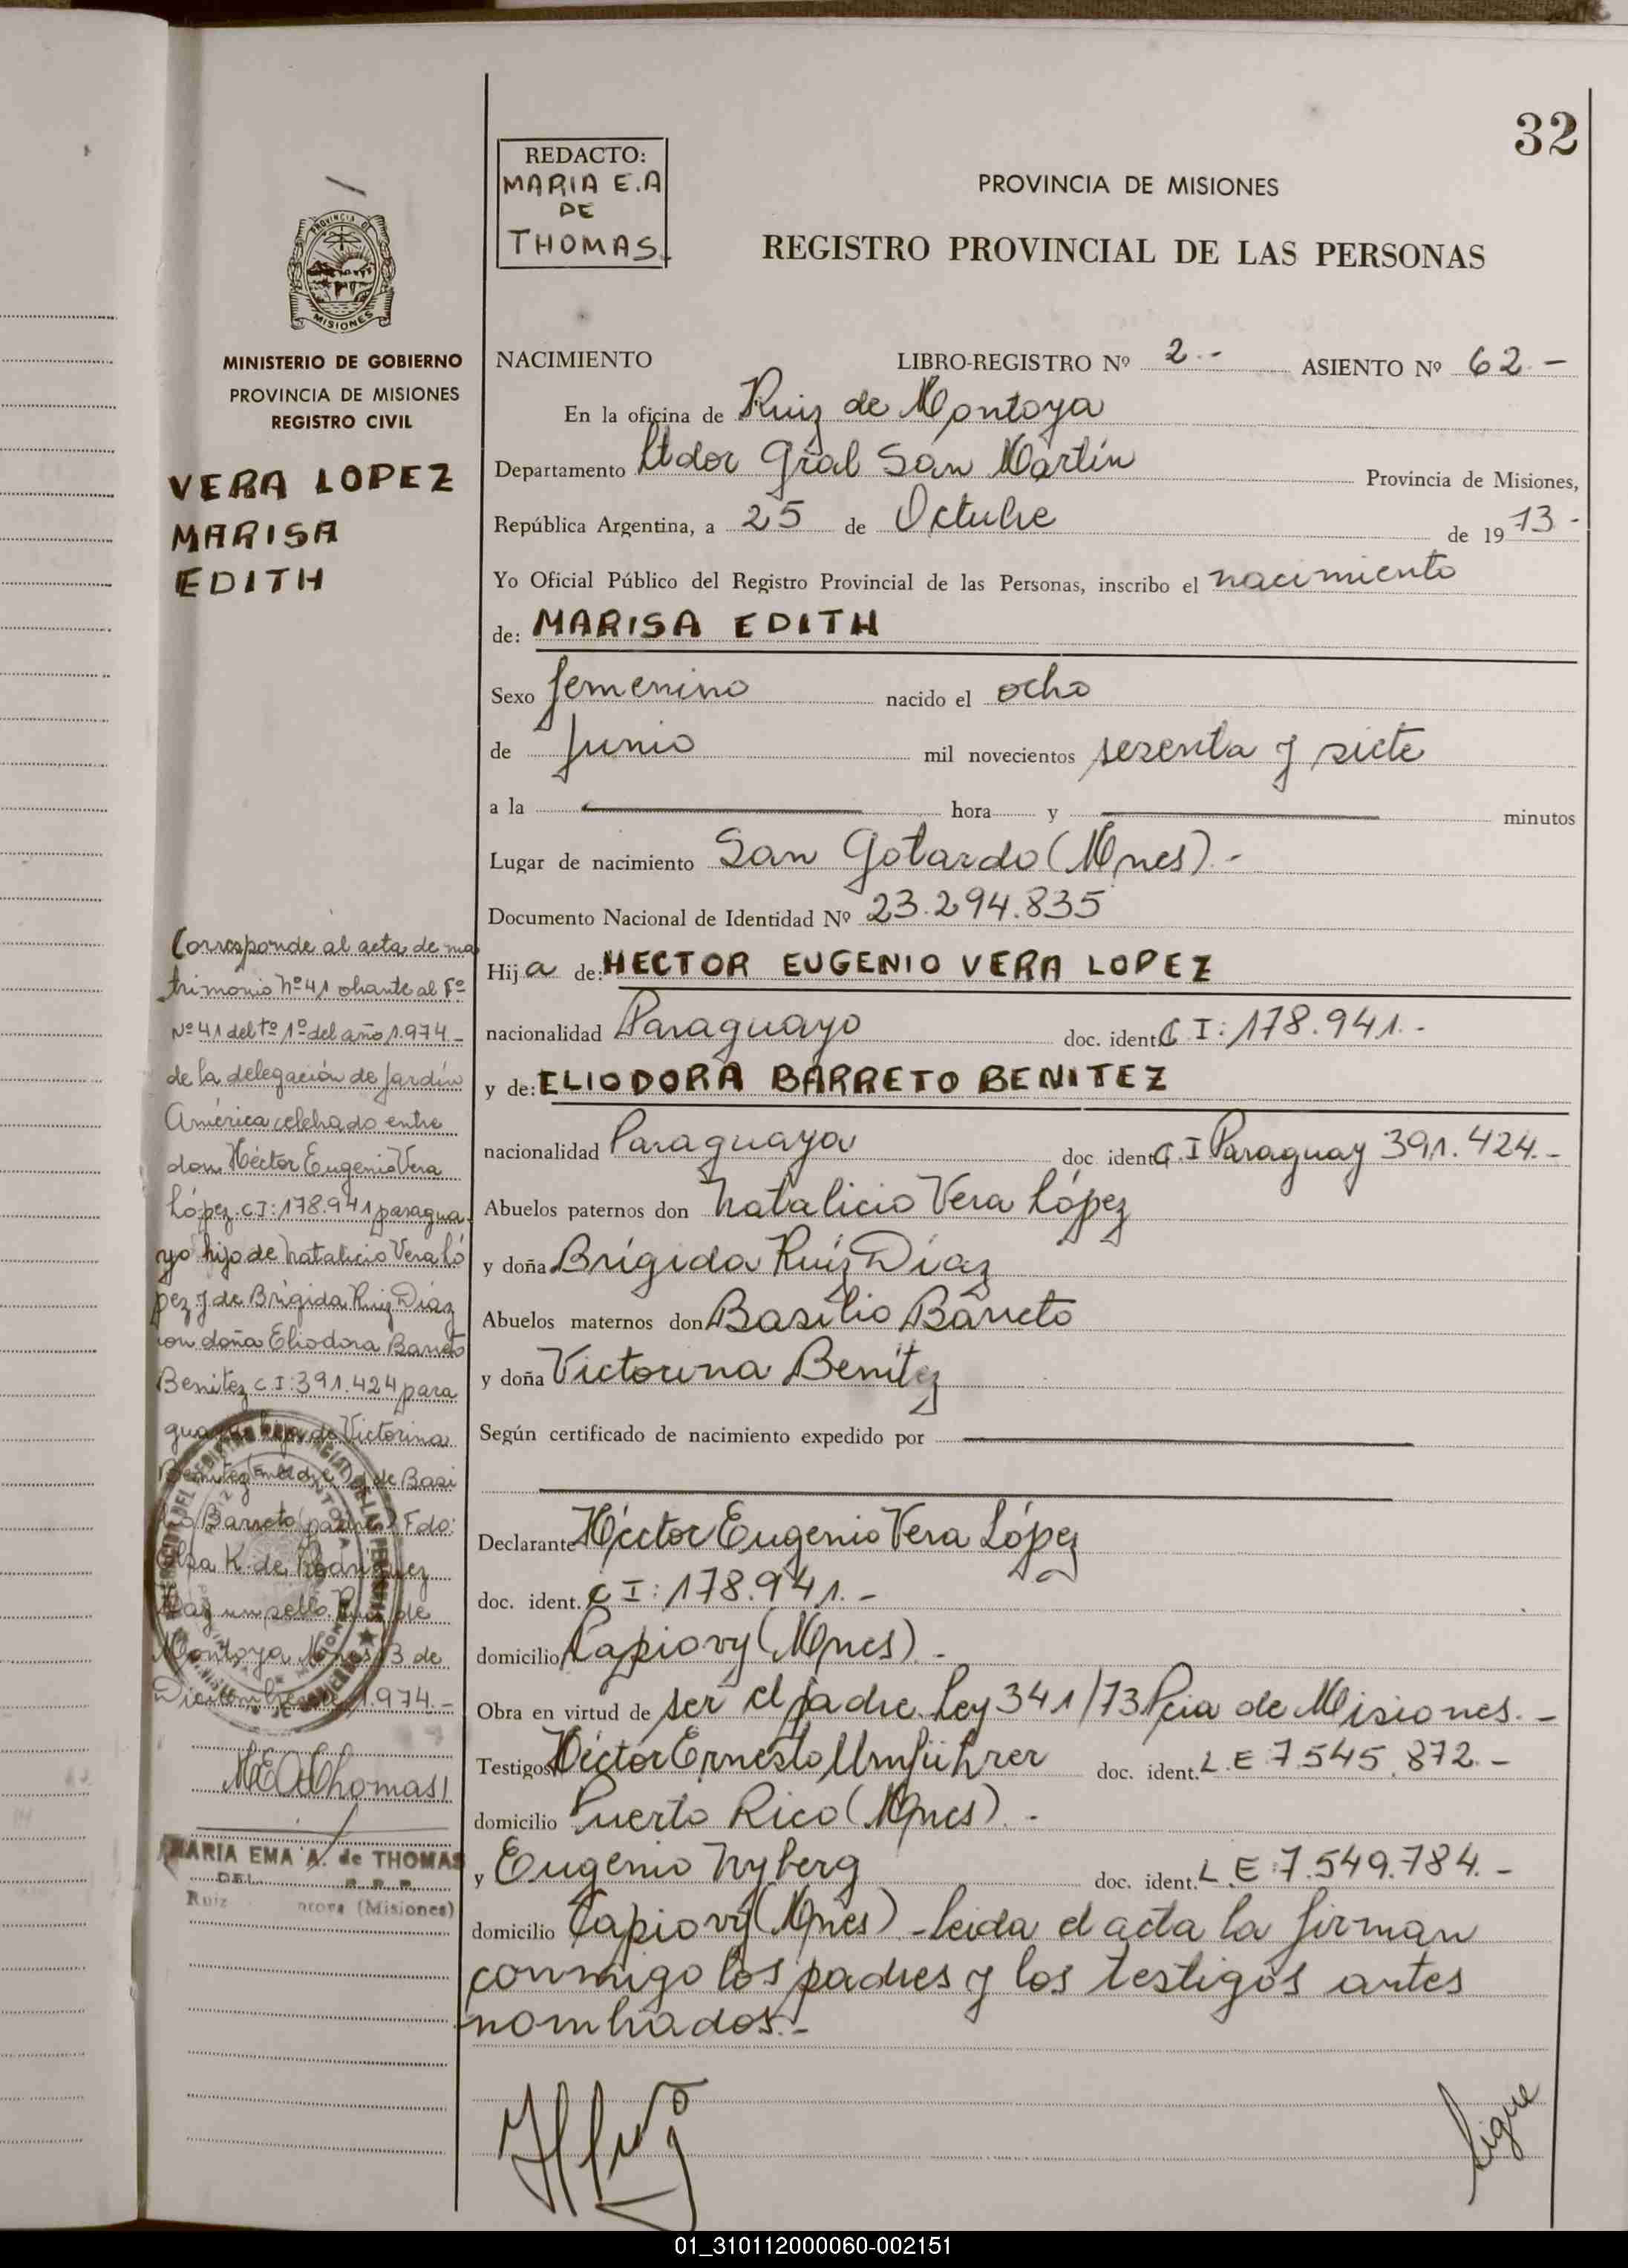 32
REDACTO:
MARIA E.A
DE
THOMAS.
PROVINCIA DE MISIONES
REGISTRO PROVINCIAL DE LAS PERSONAS
PROVINCIA DE
MISIONES
MINISTERIO DE GOBIERNO
PROVINCIA DE MISIONES
REGISTRO CIVIL
VERA LOPEZ
MARISA
EDITH
NACIMIENTO LIBRO-REGISTRO Nº 2.- ASIENTO Nº 62.-
En la oficina de Ruiz de Montoya
Departamento Ltdor Gral San Martín Provincia de Misiones,
República Argentina, a 25 de Octubre de 1973.-
Yo Oficial Público del Registro Provincial de las Personas, inscribo el nacimiento
de: MARISA EDITH
Sexo femenino nacido el ocho
de Junio mil novecientos sesenta y siete
a la hora y minutos
Lugar de nacimiento San Gotardo (Mnes).-
Documento Nacional de Identidad Nº 23.294.835
Hija de: HECTOR EUGENIO VERA LOPEZ
nacionalidad Paraguayo doc. ident. C I: 178.941.-
y de: ELIODORA BARRETO BENITEZ
nacionalidad Paraguaya doc. ident. C.I Paraguay 391.424.-
Abuelos paternos don Natalicio Vera López
y doña Brígida Ruíz Díaz
Abuelos maternos don Basilio Barreto
y doña Victorina Benítez
Según certificado de nacimiento expedido por
Declarante Héctor Eugenio Vera López
doc. ident. C I: 178.941.-
domicilio Capiovy (Mnes).-
Obra en virtud de ser el padre. Ley 341/73 Pcia de Misiones.-
Testigos Héctor Ernesto Umführer doc. ident. L.E 7.545.872.-
domicilio Puerto Rico (Mnes).-
y Eugenio Nyberg doc. ident. L.E: 7.549.784.-
domicilio Capiovy (Mnes) - Leida el acta la firman
conmigo los padres y los testigos antes
nombrados.-
Sigue
Corresponde al acta de ma
trimonio Nº 41 obrante al Fº
Nº 41 del tº 1º del año 1.974.-
de la delegación de Jardín
América celebrado entre
don Héctor Eugenio Vera
López. C I: 178.941 paragua
yo hijo de Natalicio Vera Ló
pez y de Brígida Ruiz Díaz
con doña Eliodora Barreto
Benitez C I: 391.424 para
guaya hija de Victorina
Benitez (madre) y de Basi
lio Barreto (padre) Fdo:
K. de Rodriguez
Hay un sello. Ruiz de
Montoya Mnes 13 de
Diciembre de 1.974.-
MEAThomas
MARIA EMA A. de THOMAS
DEL. R.P.P.
Ruiz (Misiones)
01_310112000060-002151